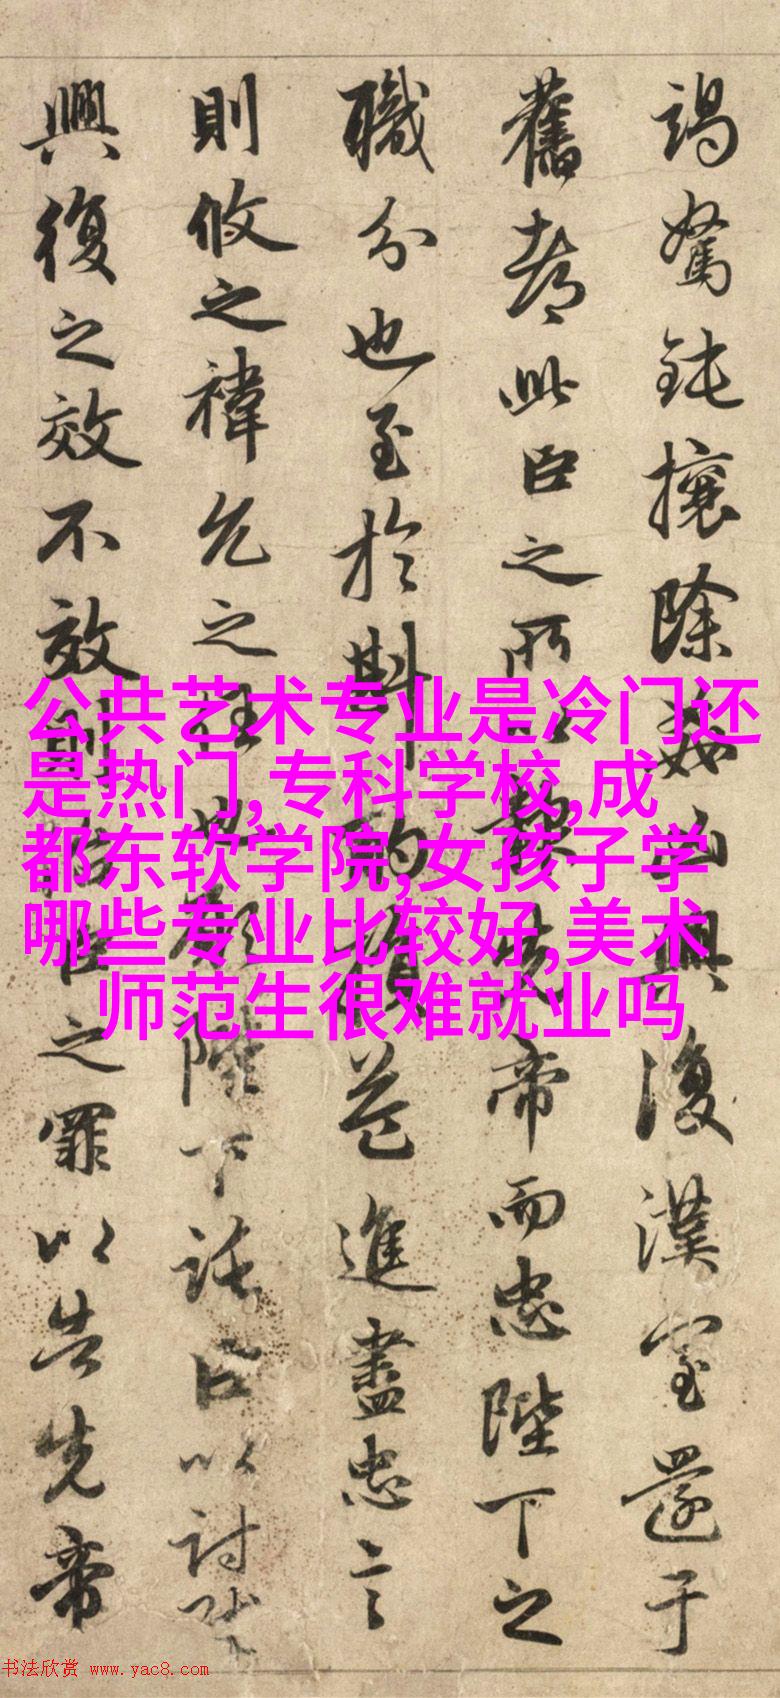 竭駑鈍攘除姦凶興復漢室還于
舊都此臣之所以報先帝而忠陛下之
職分也至於斟酌損益進盡忠言
則攸之禕允之任也願陛下託臣以討賊
興復之效不效則治臣之罪以告先帝
公共艺术专业是冷门还
是热门,专科学校,成
都东软学院,女孩子学
哪些专业比较好,美术
师范生很难就业吗
书法欣赏 www.yac8.com